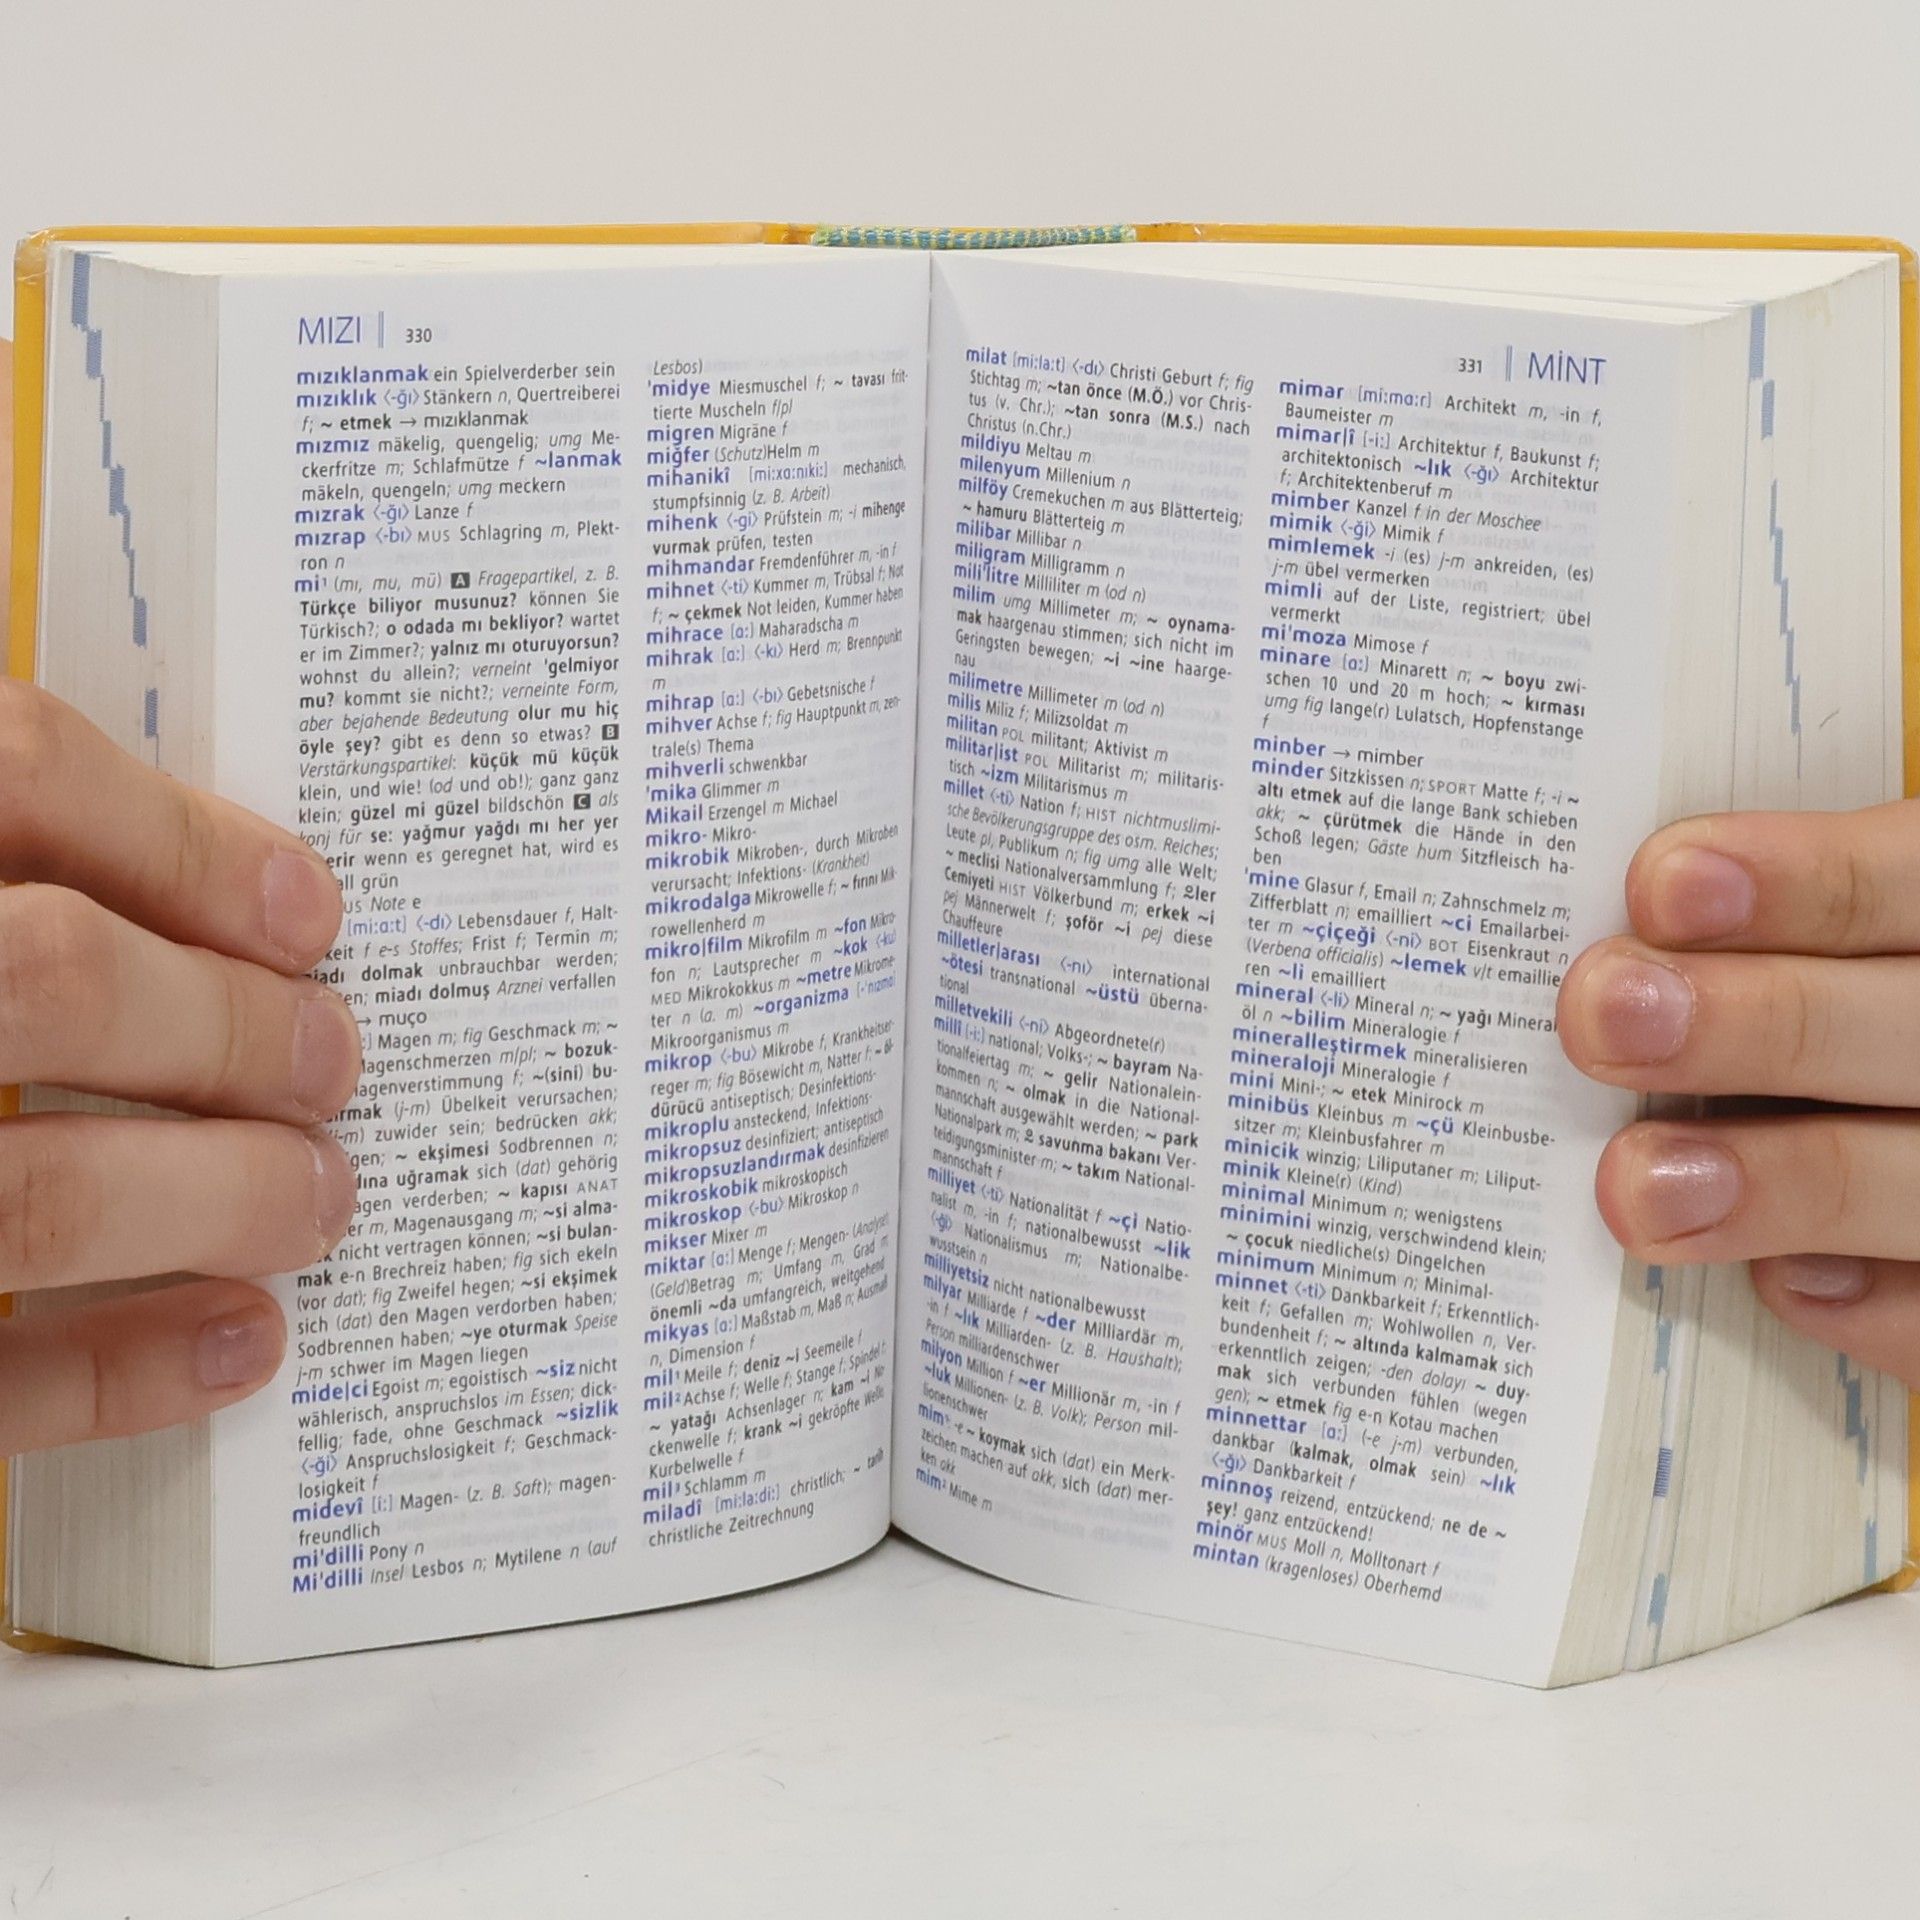 MIZI 330
mızıklanmak ein Spielverderber sein
mızıklık ‹-ğı› Stänkern n, Quertreiberei
f; ~ etmek → mızıklanmak
mızmız mäkelig, quengelig; umg Me-
ckerfritze m; Schlafmütze f ~lanmak
mäkeln, quengeln; umg meckern
mızrak ‹-ğı› Lanze f
mızrap ‹-bı› MUS Schlagring m, Plekt-
ron n
mi¹ (mı, mu, mü) A Fragepartikel, z. B.
Türkçe biliyor musunuz? können Sie
Türkisch?; o odada mı bekliyor? wartet
er im Zimmer?; yalnız mı oturuyorsun?
wohnst du allein?; verneint 'gelmiyor
mu? kommt sie nicht?; verneinte Form,
aber bejahende Bedeutung olur mu hiç
öyle şey? gibt es denn so etwas? B
Verstärkungspartikel: küçük mü küçük
klein, und wie! (od und ob!); ganz ganz
klein; güzel mi güzel bildschön C als
konj für se: yağmur yağdı mı her yer
erir wenn es geregnet hat, wird es
all grün
us Note e
[miːaːt] ‹-dı› Lebensdauer f, Halt-
keit f e-s Stoffes; Frist f; Termin m;
miadı dolmak unbrauchbar werden;
en; miadı dolmuş Arznei verfallen
→ muço
Magen m; fig Geschmack m; ~
Magenschmerzen m/pl; ~ bozuk-
Magenverstimmung f; ~(sini) bu-
ırmak (j-m) Übelkeit verursachen;
(j-m) zuwider sein; bedrücken akk;
gen; ~ ekşimesi Sodbrennen n;
dına uğramak sich (dat) gehörig
agen verderben; ~ kapısı ANAT
er m, Magenausgang m; ~si alma-
k nicht vertragen können; ~si bulan-
mak e-n Brechreiz haben; fig sich ekeln
(vor dat); fig Zweifel hegen; ~si ekşimek
sich (dat) den Magen verdorben haben;
Sodbrennen haben; ~ye oturmak Speise
j-m schwer im Magen liegen
mide|ci Egoist m; egoistisch ~siz nicht
wählerisch, anspruchslos im Essen; dick-
fellig; fade, ohne Geschmack ~sizlik
‹-ği› Anspruchslosigkeit f; Geschmack-
losigkeit f
midevî [iː] Magen- (z. B. Saft); magen-
freundlich
mi'dilli Pony n
Mi'dilli Insel Lesbos n; Mytilene n (auf
Lesbos)
'midye Miesmuschel f; ~ tavası frit-
tierte Muscheln f/pl
migren Migräne f
miğfer (Schutz)Helm m
mihanikî [miːxaːnıkiː] mechanisch,
stumpfsinnig (z. B. Arbeit)
mihenk ‹-gi› Prüfstein m; -i mihenge
vurmak prüfen, testen
mihmandar Fremdenführer m, -in f
mihnet ‹-ti› Kummer m, Trübsal f; Not
f; ~ çekmek Not leiden, Kummer haben
mihrace [aː] Maharadscha m
mihrak [aː] ‹-kı› Herd m; Brennpunkt
m
mihrap [aː] ‹-bı› Gebetsnische f
mihver Achse f; fig Hauptpunkt m, zen-
trale(s) Thema
mihverli schwenkbar
'mika Glimmer m
Mikail Erzengel m Michael
mikro- Mikro-
mikrobik Mikroben-, durch Mikroben
verursacht; Infektions- (Krankheit)
mikrodalga Mikrowelle f; ~ fırını Mik-
rowellenherd m
mikro|film Mikrofilm m ~fon Mikro-
fon n; Lautsprecher m ~kok ‹-ku›
MED Mikrokokkus m ~metre Mikrome-
ter n (a. m) ~organizma [-'nızma]
Mikroorganismus m
mikrop ‹-bu› Mikrobe f, Krankheitser-
reger m; fig Bösewicht m, Natter f; ~ öl-
dürücü antiseptisch; Desinfektions-
mikroplu ansteckend, Infektions-
mikropsuz desinfiziert; antiseptisch
mikropsuzlandırmak desinfizieren
mikroskobik mikroskopisch
mikroskop ‹-bu› Mikroskop n
mikser Mixer m
miktar [aː] Menge f; Mengen- (Analyse)
(Geld)Betrag m; Umfang m, Grad m
önemli ~da umfangreich, weitgehend
mikyas [aː] Maßstab m, Maß n; Ausmaß
n, Dimension f
mil¹ Meile f; deniz ~i Seemeile f
mil² Achse f; Welle f; Stange f; Spindel f;
~ yatağı Achsenlager n; kam ~i No-
ckenwelle f; krank ~i gekröpfte Welle,
Kurbelwelle f
mil³ Schlamm m
miladî [miːlaːdiː] christlich; ~ tarih
christliche Zeitrechnung
331 MİNT
milat [miːlaːt] ‹-dı› Christi Geburt f; fig
Stichtag m; ~tan önce (M.Ö.) vor Chris-
tus (v. Chr.); ~tan sonra (M.S.) nach
Christus (n.Chr.)
mildiyu Meltau m
milenyum Millenium n
milföy Cremekuchen m aus Blätterteig;
~ hamuru Blätterteig m
milibar Millibar n
miligram Milligramm n
mili'litre Milliliter m (od n)
milim umg Millimeter m; ~ oynama-
mak haargenau stimmen; sich nicht im
Geringsten bewegen; ~i ~ine haarge-
nau
milimetre Millimeter m (od n)
milis Miliz f; Milizsoldat m
militan POL militant; Aktivist m
militar|ist POL Militarist m; militaris-
tisch ~izm Militarismus m
millet ‹-ti› Nation f; HIST nichtmuslimi-
sche Bevölkerungsgruppe des osm. Reiches;
Leute pl, Publikum n; fig umg alle Welt;
~ meclisi Nationalversammlung f; ≗ler
Cemiyeti HIST Völkerbund m; erkek ~i
pej Männerwelt f; şoför ~i pej diese
Chauffeure
milletler|arası ‹-nı› international
~ötesi transnational ~üstü überna-
tional
milletvekili ‹-ni› Abgeordnete(r)
millî [-iː] national; Volks-; ~ bayram Na-
tionalfeiertag m; ~ gelir Nationalein-
kommen n; ~ olmak in die National-
mannschaft ausgewählt werden; ~ park
Nationalpark m; ≗ savunma bakanı Ver-
teidigungsminister m; ~ takım National-
mannschaft f
milliyet ‹-ti› Nationalität f ~çi Natio-
nalist m, -in f; nationalbewusst ~lik
‹-ği› Nationalismus m; Nationalbe-
wusstsein n
milliyetsiz nicht nationalbewusst
milyar Milliarde f ~der Milliardär m,
-in f ~lık Milliarden- (z. B. Haushalt);
Person milliardenschwer
milyon Million f ~er Millionär m, -in f
~luk Millionen- (z. B. Volk); Person mil-
lionenschwer
mim¹ -e ~ koymak sich (dat) ein Merk-
zeichen machen auf akk, sich (dat) mer-
ken akk
mim² Mime m
mimar [miːmaːr] Architekt m, -in f,
Baumeister m
mimar|î [-iː] Architektur f, Baukunst f;
architektonisch ~lık ‹-ğı› Architektur
f; Architektenberuf m
mimber Kanzel f in der Moschee
mimik ‹-ği› Mimik f
mimlemek -i (es) j-m ankreiden, (es)
j-m übel vermerken
mimli auf der Liste, registriert; übel
vermerkt
mi'moza Mimose f
minare [aː] Minarett n; ~ boyu zwi-
schen 10 und 20 m hoch; ~ kırması
umg fig lange(r) Lulatsch, Hopfenstange
f
minber → mimber
minder Sitzkissen n; SPORT Matte f; -i ~
altı etmek auf die lange Bank schieben
akk; ~ çürütmek die Hände in den
Schoß legen; Gäste hum Sitzfleisch ha-
ben
'mine Glasur f, Email n; Zahnschmelz m;
Zifferblatt n; emailliert ~ci Emailarbei-
ter m ~çiçeği ‹-ni› BOT Eisenkraut n
(Verbena officialis) ~lemek v/t emaillie-
ren ~li emailliert
mineral ‹-li› Mineral n; ~ yağı Mineral-
öl n ~bilim Mineralogie f
mineralleştirmek mineralisieren
mineraloji Mineralogie f
mini Mini-; ~ etek Minirock m
minibüs Kleinbus m ~çü Kleinbusbe-
sitzer m; Kleinbusfahrer m
minicik winzig; Liliputaner m; Liliput-
minik Kleine(r) (Kind)
minimal Minimum n; wenigstens
minimini winzig, verschwindend klein;
~ çocuk niedliche(s) Dingelchen
minimum Minimum n; Minimal-
minnet ‹-ti› Dankbarkeit f; Erkenntlich-
keit f; Gefallen m; Wohlwollen n, Ver-
bundenheit f; ~ altında kalmamak sich
erkenntlich zeigen; -den dolayı ~ duy-
mak sich verbunden fühlen (wegen
gen); ~ etmek fig e-n Kotau machen
minnettar [aː] (-e j-m) verbunden,
dankbar (kalmak, olmak sein) ~lık
‹-ğı› Dankbarkeit f
minnoş reizend, entzückend; ne de ~
şey! ganz entzückend!
minör MUS Moll n, Molltonart f
mintan (kragenloses) Oberhemd